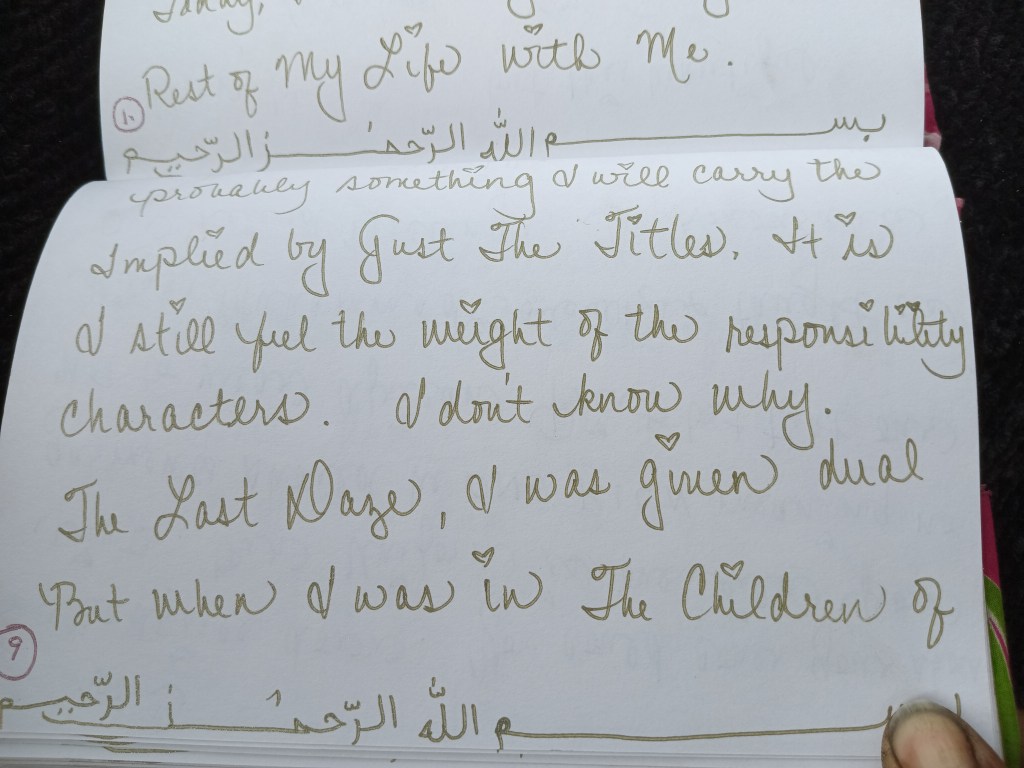 Rest of My Life with Me.
١٠
بســـم الله الرّحمٰن الرّحيم
probably something I will carry the
Implied by Just The Titles. It is
I still feel the weight of the responsibility
characters. I don't know why.
The Last Daze, I was given dual
But when I was in The Children of
٩
م الله الرّحمٰن الرّحيم